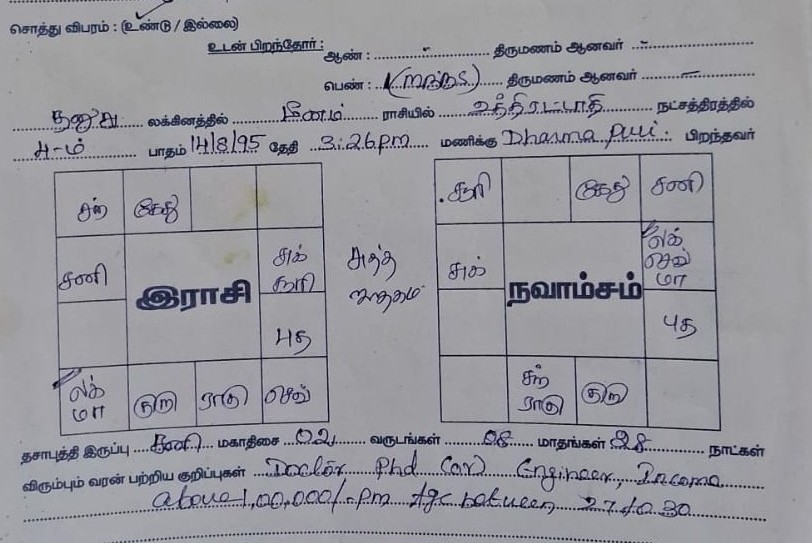 சொத்து விபரம் : (உண்டு / இல்லை)
உடன் பிறந்தோர் : ஆண் : - திருமணம் ஆனவர் -
பெண் : திருமணம் ஆனவர் -
தனுசு லக்கினத்தில் மீனம் ராசியில் உத்திரட்டாதி நட்சத்திரத்தில்
4-ம் பாதம் 14/8/95 தேதி 3:26pm மணிக்கு Dharmapuri பிறந்தவர்
சந் கேது
சனி கேது சனி
சுக் சூரி
இராசி
சுத்த ஜாதகம்
சூரி
சுக்
நவாம்சம்
லக் செவ் மா
புத
புத
லக் மா குரு ராகு செவ்
சந் ராகு குரு
தசாபுத்தி இருப்பு சனி மகாதிசை 02 வருடங்கள் 08 மாதங்கள் 28 நாட்கள்
விரும்பும் வரன் பற்றிய குறிப்புகள் Doctor Phd (or) Engineer, Income
above 1,00,000/- pm Age between 27 to 30